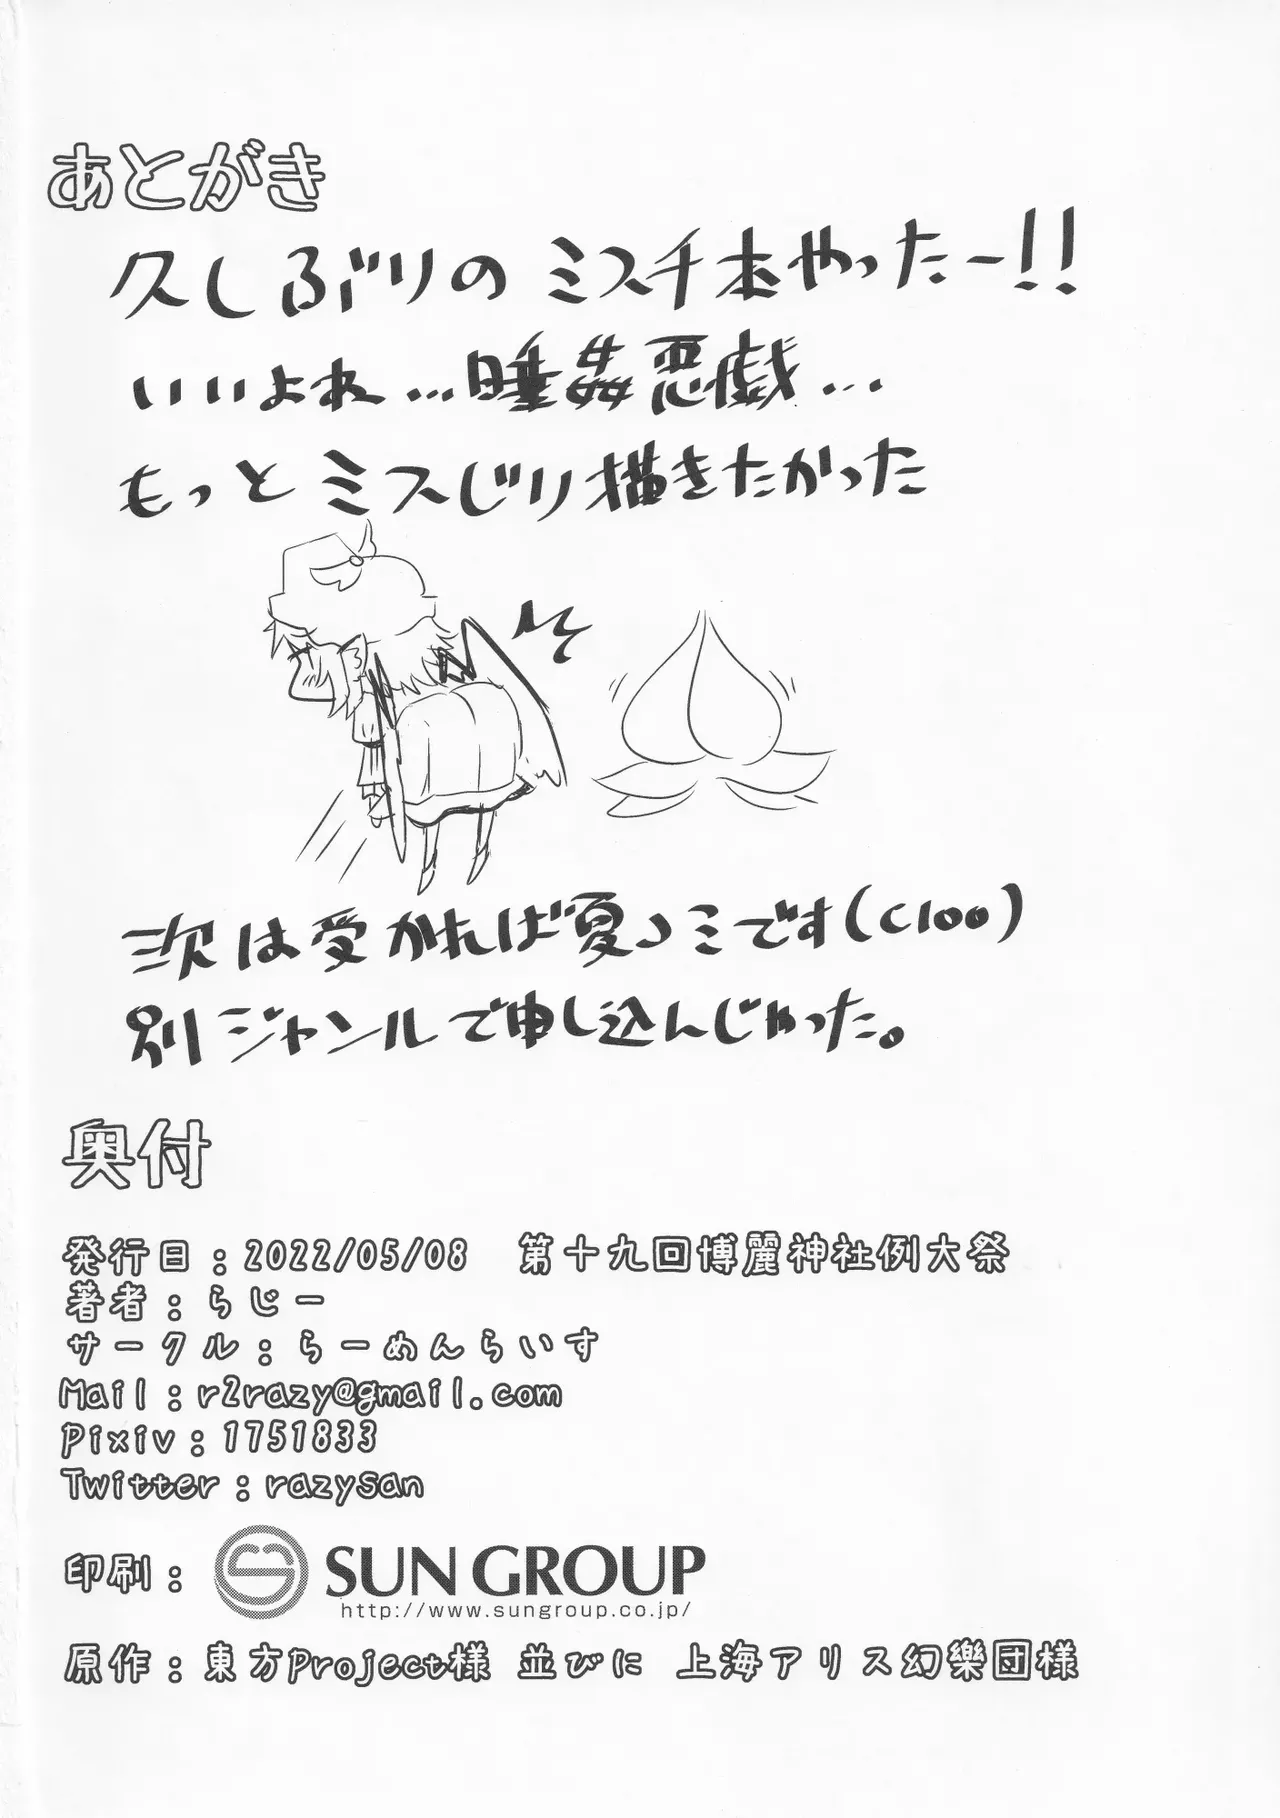 あとがき
久しぶりのミスチ本やったー!!
いいよね…睡姦悪戯…
もっとミスじり描きたかった
次は受かれば夏コミです(C100)
別ジャンルで申し込んじゃった。
奥付
発行日：2022/05/08　第十九回博麗神社例大祭
著者：らじー
サークル：らーめんらいす
Mail：r2razy@gmail.com
Pixiv：1751833
Twitter：razysan
印刷：SUN GROUP
http://www.sungroup.co.jp/
原作：東方Project様 並びに 上海アリス幻樂団様